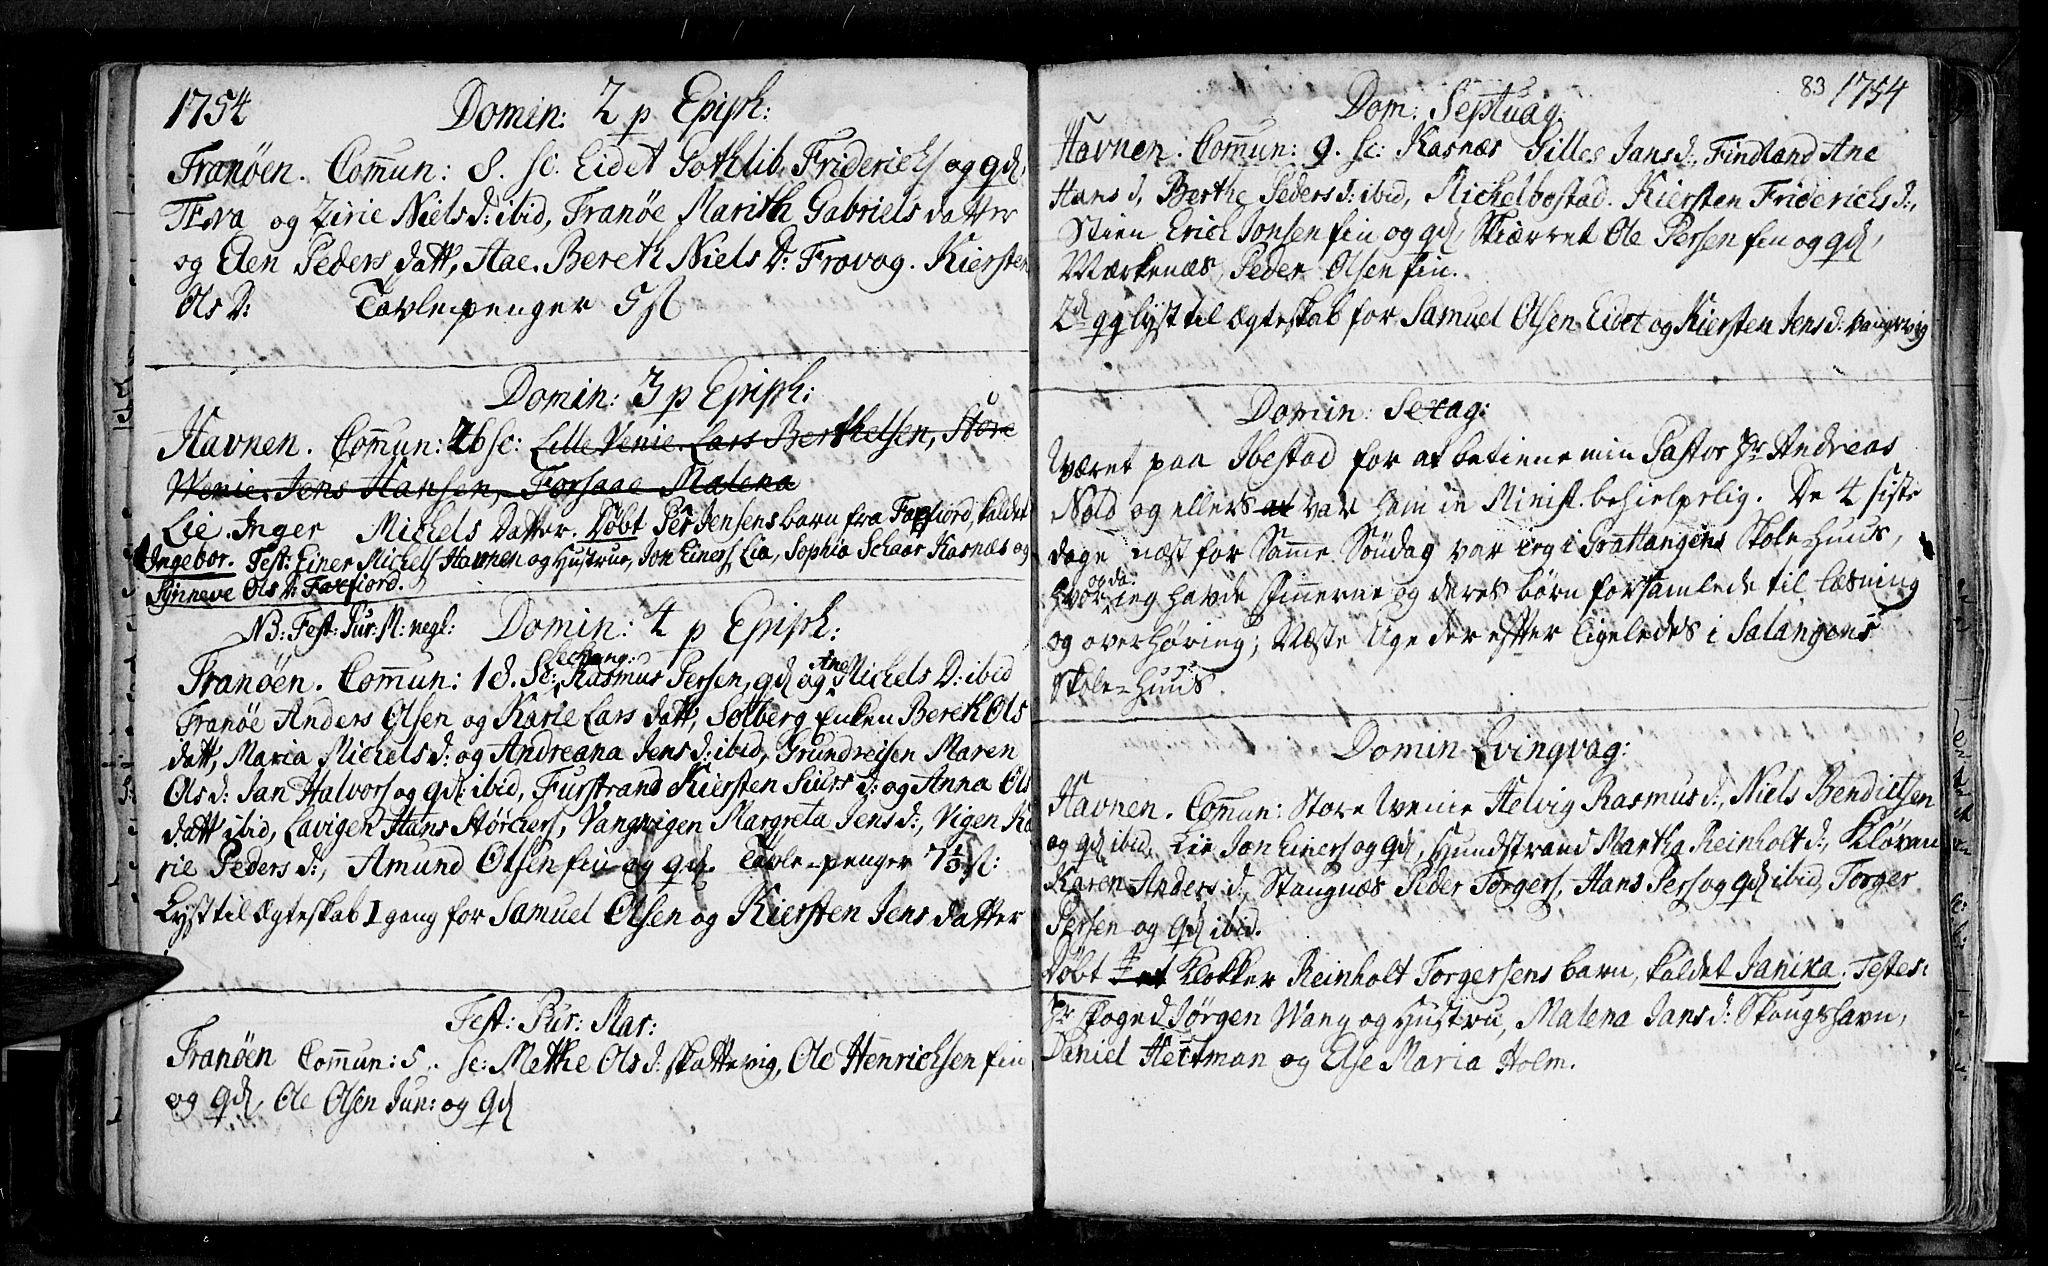 1754
Domin: 2 p Epiph:
Tranöen. Com̄un: 8. sc: Eidet Gothlib Friderichs og qd,
og Zirie Niels d: ibid, Tranöe Marith Gabriels datter
og Elen Peders datt, Aae. Bereth Niels D: Frovog. Kiersten
Ols D: Tavle-penger 5 sl
Domin: 3 p Epiph:
Havnen. Com̄un: 26 sc: Lille Venie. Lars Berthelsen, Store
Wenie. Jens Hansen, Forsaae Malena
Lie. Inger Michels datter. Döbt Per Jensens barn fra Faxfiord, kaldet
Ingebor. Test: Einer Michels Havnen og Hustrue, Jon Einers Lia, Sophia Schaar Kasnæs og
Synneve Ols D: Faxfiord.
NB: Fest: Pur: M: negl: Domin: 4 p Epiph:
Tranöen. Com̄un: 18. Sc: Rasmus Persen, qd og Ane Michels D: ibid
Tranöe Anders Olsen og Karie Lars datt, Solberg Enken Bereth Ols
datt, Maria Michels d: og Andreana Jens d: ibid, Grundreisen Maren
Ols d: Jan Halvors og qd: ibid, Furstrand Kiersten Siurs d: og Anna Ols
datt ibid, Lavigen Hans Störchers, Vangvigen Margreta Jens d:, Vigen Ka
rie Peders d:, Amund Olsen fin og qd. Tavle-penger 7½ sl:
Lyst til Ægteskab 1 gang for Samuel Olsen og Kiersten Jens datter
Fest: Pur: Mar:
Tranöen Com̄un: 5. sc: Mathe Ols d: skattevig, Ole Henrichsen fin
og qd, Ole Olsen Jun: og qd
83 1754
Dom: Septuag:
Havnen. Com̄un: 9. sc: Kasnæs Gilles Jans d:, Findland Ane
Hans d, Berthe Peders d: ibid, Mickelbostad. Kiersten Friderichs d:,
Stien Erich Jonsen fin og qd, Skiærret Ole Persen fin og qd,
Værkenæs Peder Olsen fin.
2d gg lyst til Ægteskab for Samuel Olsen Eidet og Kiersten Jens d: Vangsvig
Domin: Sexag:
Været paa Ibestad for at betiene min Pastor Hr Andreas
Nold og ellers at var ham in Minist. behielpelig. De 4 siste
dage næst for Samme Söndag var ieg i Grattangens Skole-Huus,
og da
hvor ieg havde finnerne og deres börn forsamlede til læsning
og overhöring; Næste Uge der efter ligeledes i Salangens
Skole-Huus.
Domin Qvinqvag:
Havnen. Com̄un: Store Wenie Helvig Rasmus d:, Niels Bendictsen
og qd ibid, Lie Jon Einers og qd, Hundstrand Martha Reinholt d:, Klöven
Karen Anders d:, Stangnæs Peder Torgers, Hans Pers og qd ibid, Torger
Persen og qd ibid.
Döbt Klokker Reinholt Torgersens barn, kaldet Janika. Testes:
Hr foged Jörgen Wang og Hustru, Malena Jans d: Skougshavn,
Daniel Heitman og Else Maria Holm.